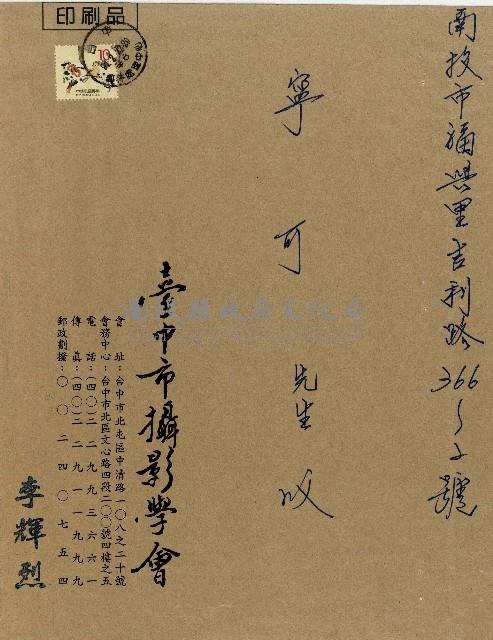 印刷品
南投市福興里吉利路366～2號
寧可先生收
臺中市攝影學會
會址：台中市北屯區中清路一〇八之二十號
會務中心：台中市北區文心路四段二〇〇號四樓之五
電話：(〇四)二二九九三六六一
傳真：(〇四)二二九一一九九九
郵政劃撥：〇〇二四〇七五四
李輝烈
南投縣政府文化局